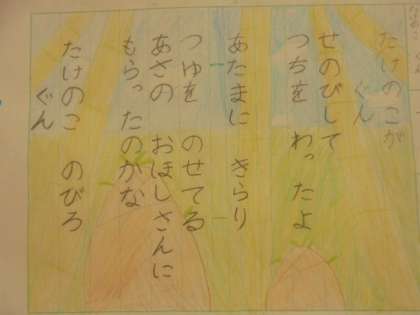 たけのこが
ぐん
せのびして
つちを わったよ
あたまに きらり
つゆを のせてる
あさの おほしさんに
もらったのかな
たけのこ のびろ
ぐん